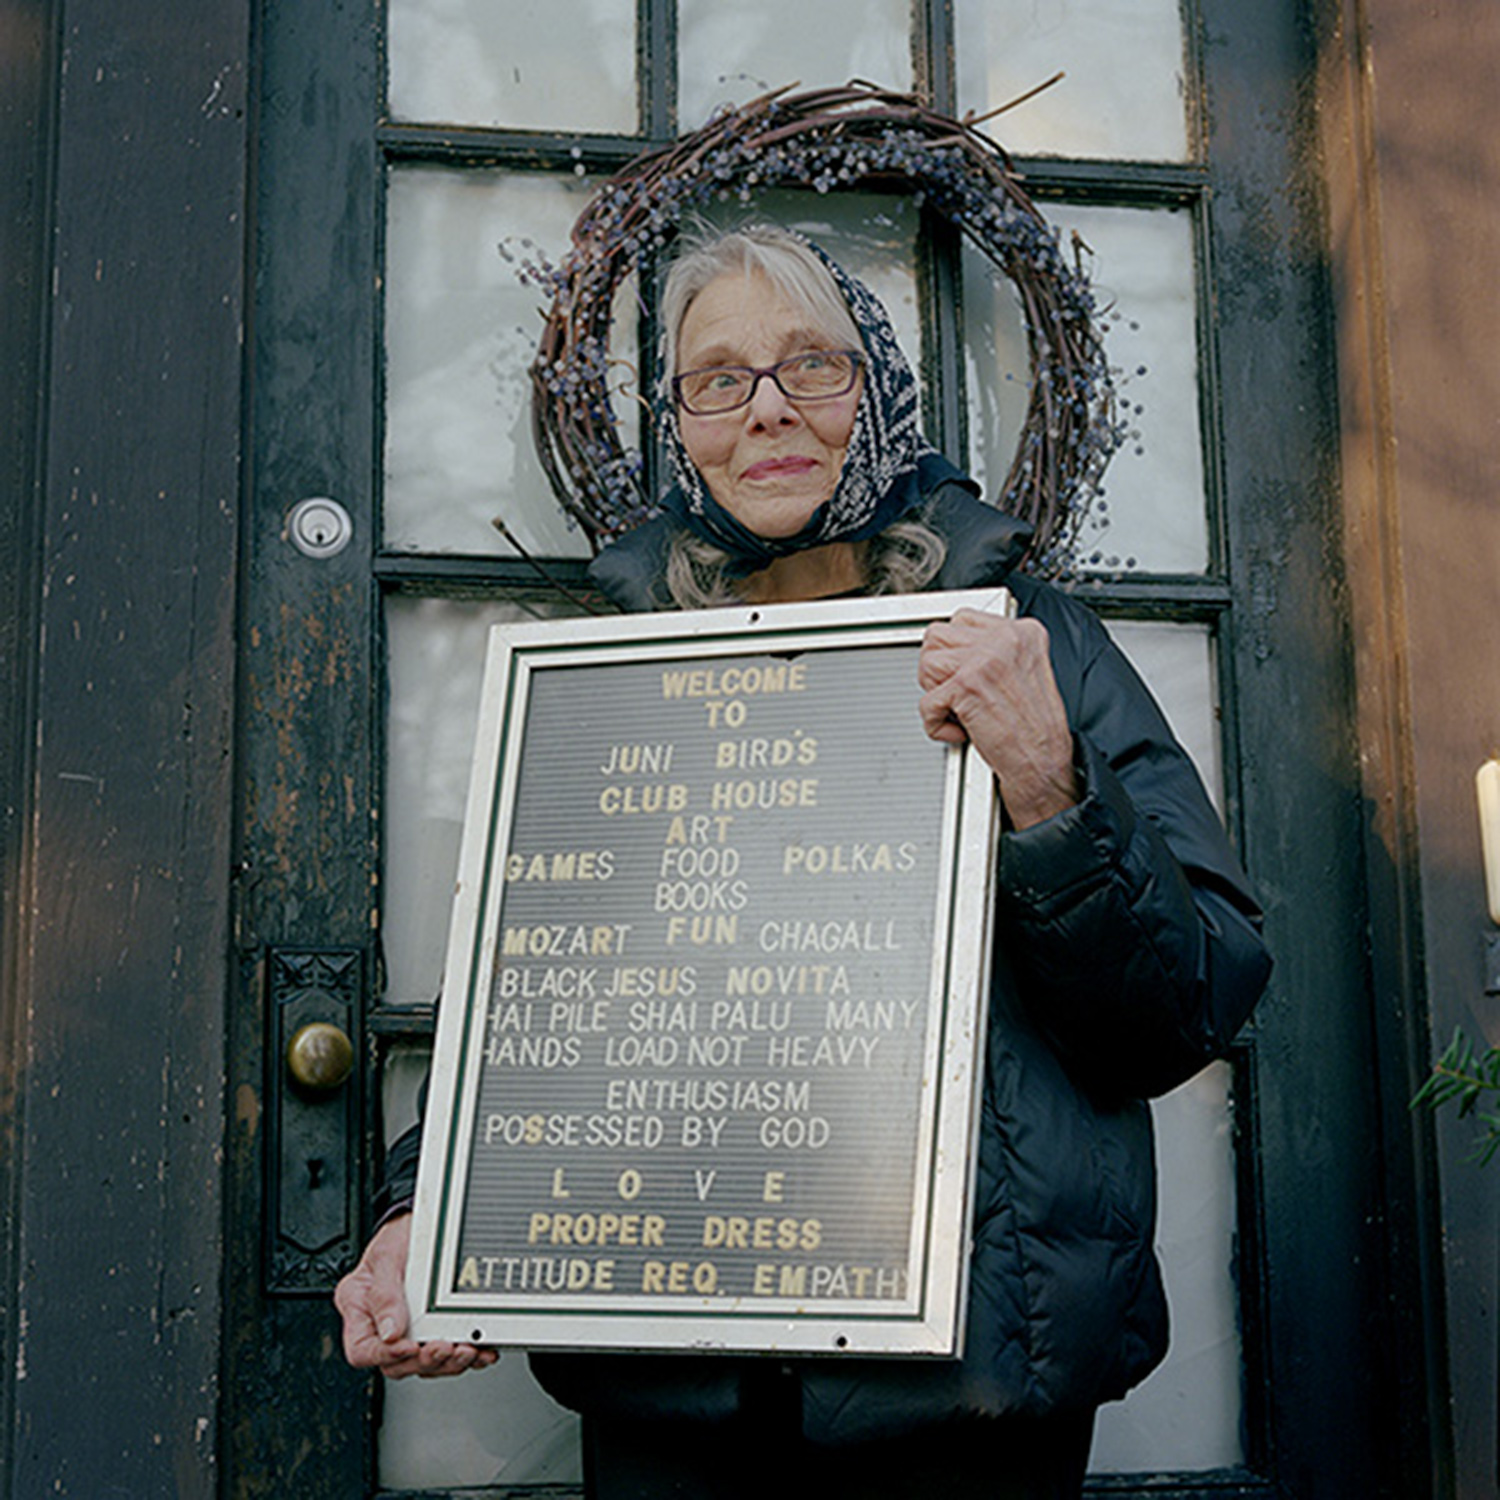 WELCOME
TO
JUNI BIRD'S
CLUB HOUSE
ART
GAMES FOOD POLKAS
BOOKS
MOZART FUN CHAGALL
BLACK JESUS NOVITA
HAI PILE SHAI PALU MANY
HANDS LOAD NOT HEAVY
ENTHUSIASM
POSSESSED BY GOD
L O V E
PROPER DRESS
ATTITUDE REQ. EMPATHY